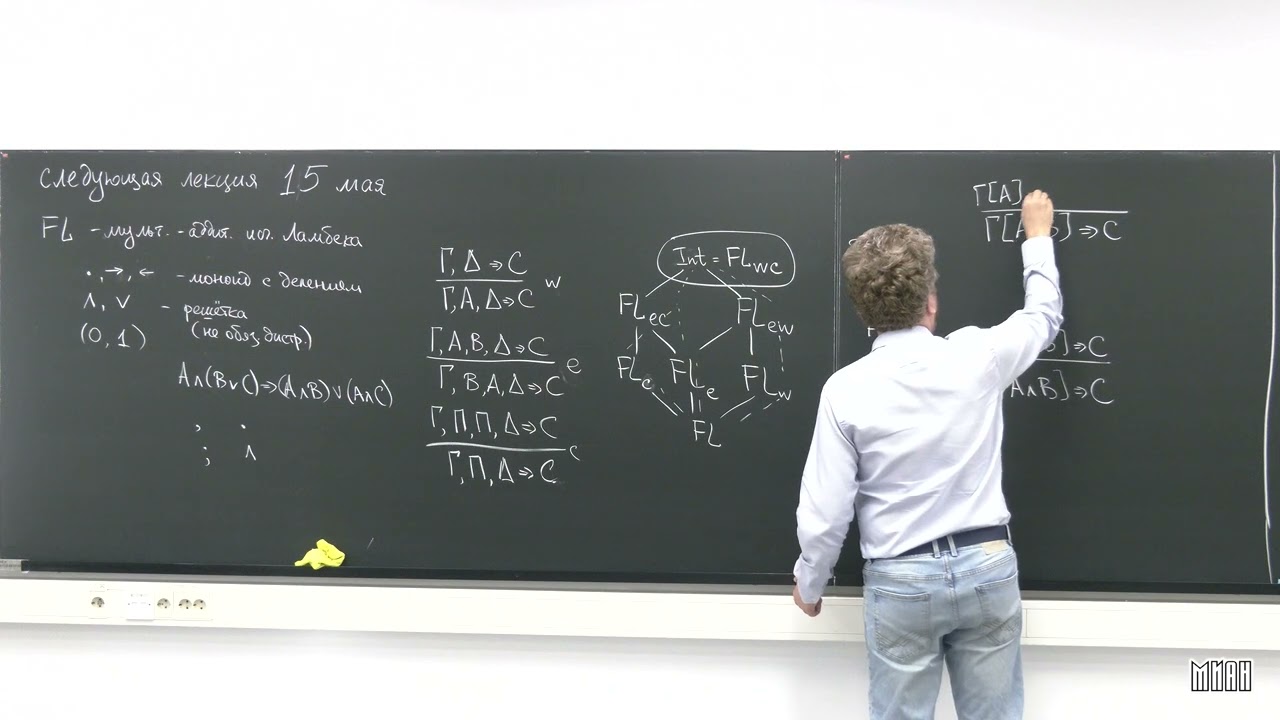 следующая лекция 15 мая
FL - мульт.-аддит. исч. Ламбека
·, →, ← - моноид с делением
∧, ∨ - решётка
(0, 1) (не обяз. дистр.)
A∧(B∨C)⇒(A∧B)∨(A∧C)
, ·
; ∧
Γ, Δ ⇒ C
Γ, A, Δ ⇒ C w
Γ, A, B, Δ ⇒ C
Γ, B, A, Δ ⇒ C e
Γ, Π, Π, Δ ⇒ C
Γ, Π, Δ ⇒ C c
Int = FLwc
FLec FLew
FLc FLe FLw
FL
Γ[A]
Γ[A B] ⇒ C
B] ⇒ C
A∧B] ⇒ C
МИАН